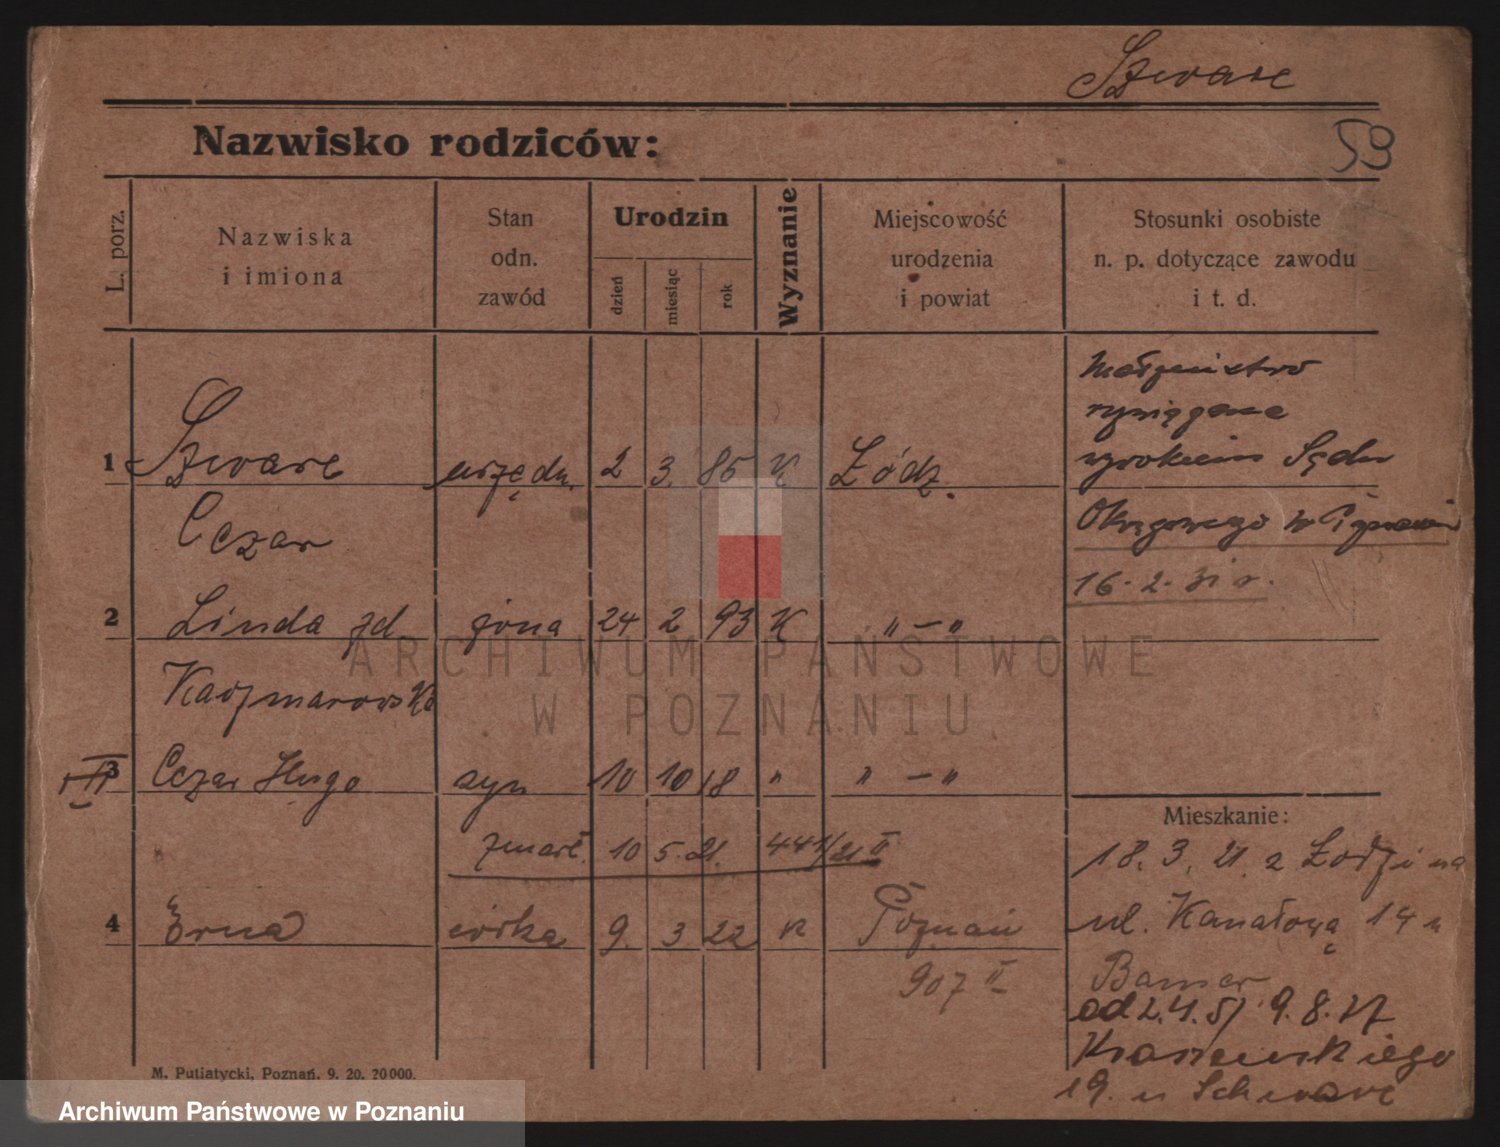 Szwarc
59
Nazwisko rodziców:
L. porz.
Nazwiska
i imiona
Stan
odn.
zawód
Urodzin
dzień
miesiąc
rok
Wyznanie
Miejscowość
urodzenia
i powiat
Stosunki osobiste
n. p. dotyczące zawodu
i t. d.
1 Szwarc urzędn. 2 3. 85 K Łódz.
Cezar
2 Linda zd żona 24 2 93 K " — "
Kaczmarowska
3 Cezar Hugo syn 10 10 18 " " — "
zmarł. 10 5. 21. 441/21 II
4 Erna córka 9. 3 22 K Poznań
907 II
małżeństwo
rozwiązane
wyrokiem Sądu
Okręgowego w Poznaniu
16. 2. 31 r.
Mieszkanie:
18. 3. 21. z Łodzi na
ul. Kanałową 14 u
od 2.4.51 9. 8. 27
Kraszewskiego
19. u Schwarc
M. Putiatycki, Poznań. 9. 20. 20000.
ARCHIWUM PAŃSTWOWE
W POZNANIU
Archiwum Państwowe w Poznaniu